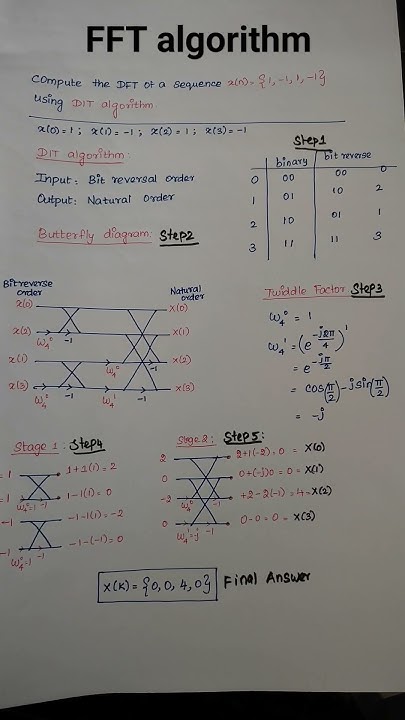 FFT algorithm
Compute the DFT of a sequence x(n) = {1, -1, 1, -1}
using DIT algorithm
x(0) = 1 ; x(1) = -1 ; x(2) = 1 ; x(3) = -1
Step1
DIT algorithm:
Input: Bit reversal order
Output: Natural order
binary bit reverse
0 00 00 0
1 01 10 2
2 10 01 1
3 11 11 3
Butterfly diagram: Step2
Bit reverse order
Natural order
x(0) X(0)
x(2) X(1)
ω₄⁰ -1
x(1) X(2)
ω₄⁰ -1
x(3) X(3)
ω₄⁰ -1 ω₄¹ -1
Twiddle Factor Step3
ω₄⁰ = 1
ω₄¹ = (e^(-j2π/4))¹
= e^(-jπ/2)
= cos(π/2) - jsin(π/2)
= -j
Stage 1: Step4
= 1 1+1(1) = 2
= 1 1-1(1) = 0
ω₄⁰=1 -1
-1 -1-1(1) = -2
-1 -1-(-1) = 0
ω₄⁰=1 -1
Stage 2: Step5:
2 2+1(-2) = 0 = X(0)
0 0+(-j)0 = 0 = X(1)
-2 +2-2(-1) = 4 = X(2)
ω₄⁰ -1
0 0-0 = 0 = X(3)
ω₄¹=-j -1
X(K) = {0, 0, 4, 0} Final Answer